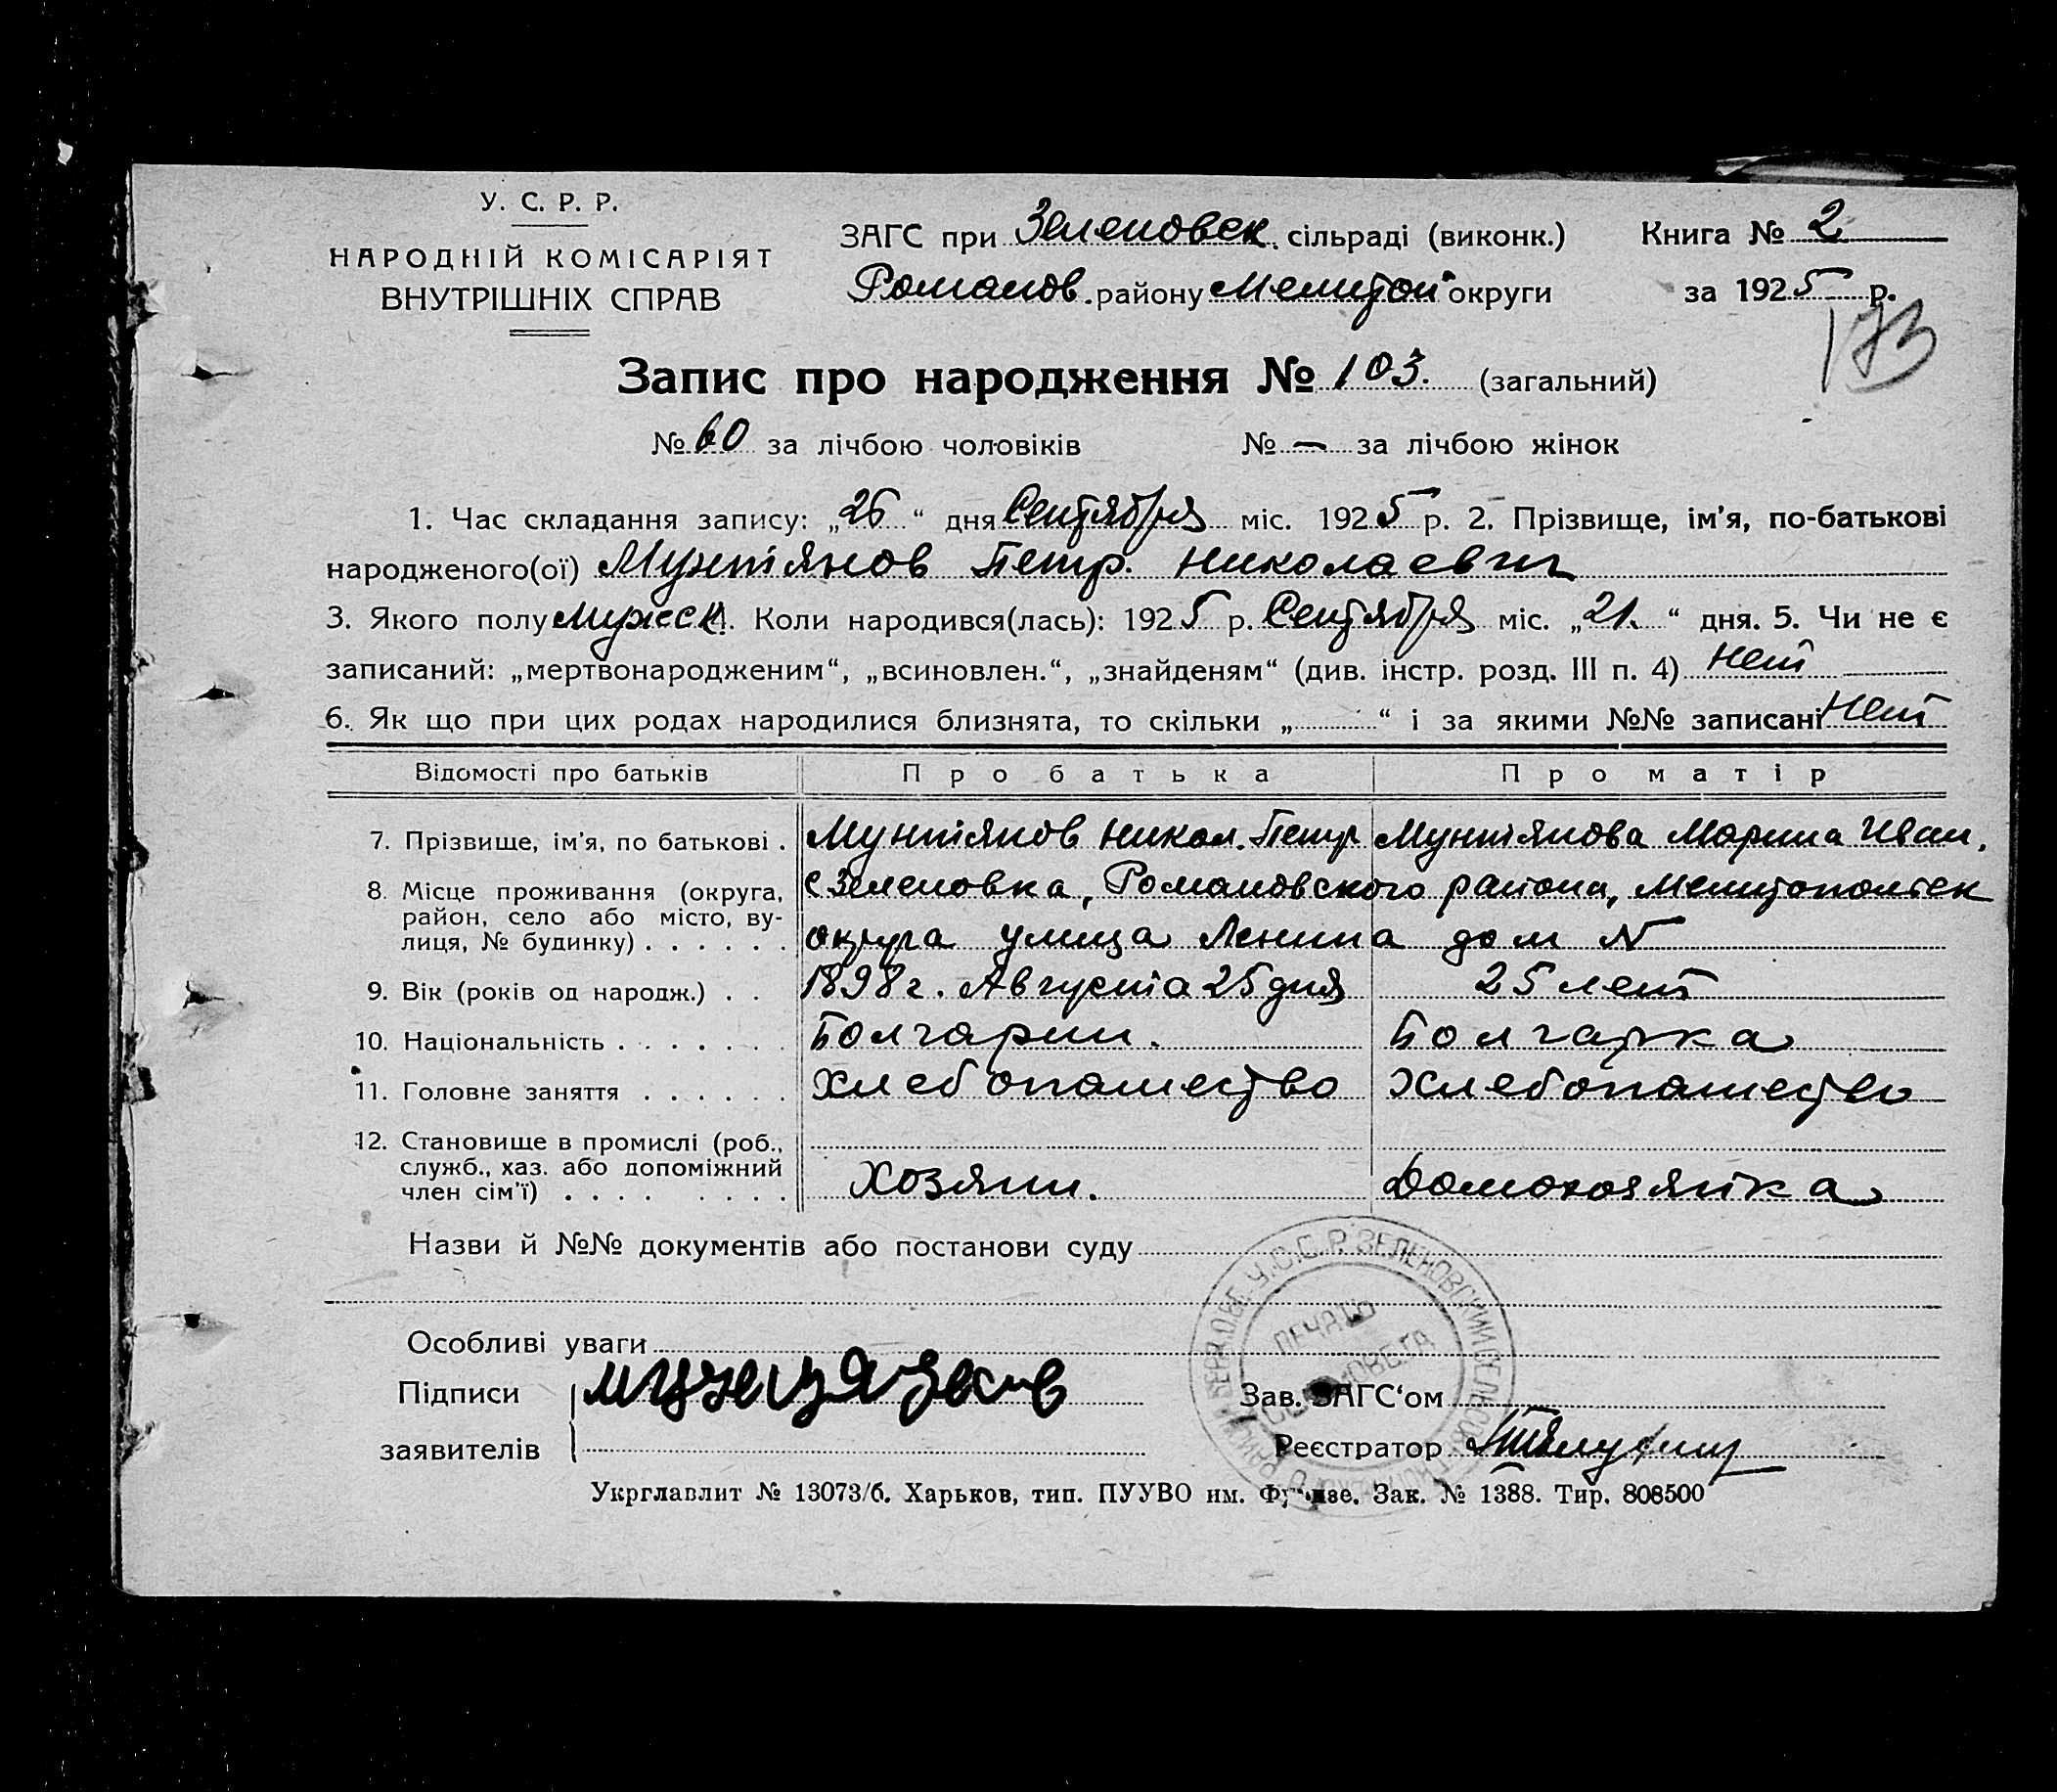 У. С. Р. Р.
НАРОДНІЙ КОМІСАРІЯТ
ВНУТРІШНІХ СПРАВ
ЗАГС при Зеленовск. сільраді (виконк.)
Романов. району Мелитоп округи
Книга № 2
за 1925 р.
173
Запис про народження № 103. (загальний)
№ 60 за лічбою чоловіків № — за лічбою жінок
1. Час складання запису: „26“ дня Сентября міс. 1925 р. 2. Прізвище, ім’я, по-батькові
народженого(ої) Мунтянов Петр. Николаевич
3. Якого полу Мужеск 4. Коли народився(лась): 1925 р. Сентября міс. „21.“ дня. 5. Чи не є
записаний: „мертвонародженим“, „всиновлен.“, „знайденям“ (див. інстр. розд. III п. 4) Нет
6. Як що при цих родах народилися близнята, то скільки „ “ і за якими №№ записані Нет
Відомості про батьків Про батька Про матір
7. Прізвище, ім’я, по батькові . Мунтянов Никол. Петр Мунтянова Марина Иван.
8. Місце проживання (округа, район, село або місто, ву-лиця, № будинку) . . . . . . с Зеленовка, Романовского района, Мелитопольск
округа улица Ленина дом N
9. Вік (років од народж.) . . 1898 г. Августа 25 дня 25 лет
10. Національність . . . . . . . Болгарин. Болгарка
11. Головне заняття . . . . . . Хлебопашество Хлебопашество
12. Становище в промислі (роб.,
служб., хаз. або допоміжний
член сім’ї) . . . . . . . . Хозяин. Домохозяйка
Назви й №№ документів або постанови суду
У.С.С.Р. ЗЕЛЕНОВСКИЙ СЕЛЬСОВ
ПЕЧАТЬ
СЕЛЬСОВЕТА
Особливі уваги
Підписи
заявителів
Зав. ЗАГС‘ом
Реєстратор
Укрглавлит № 13073/б. Харьков, тип. ПУУВО им. Фрунзе. Зак. № 1388. Тир. 808500